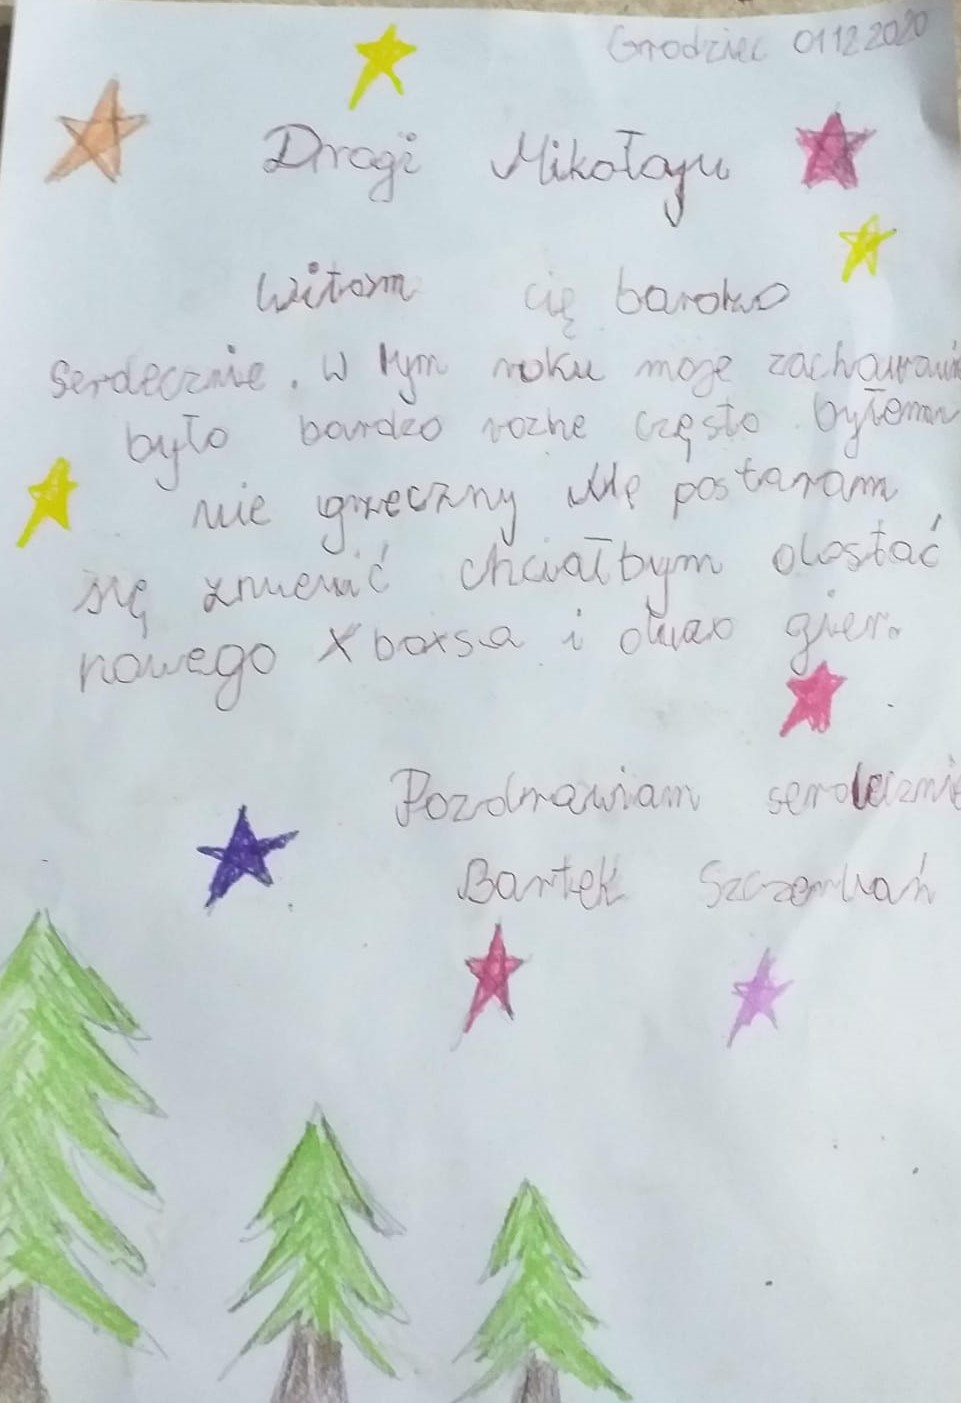 Grodziec 01.12.2020
Drogi Mikołaju
Witam cię bardzo
serdecznie. W tym roku moje zachowanie
było bardzo rożne często byłemm
nie grzeczny ale postaram
się zmienić chciałbym dostać
nowego Xboxsa i dużo gier.
Pozdrawiam serdecznie
Bartek